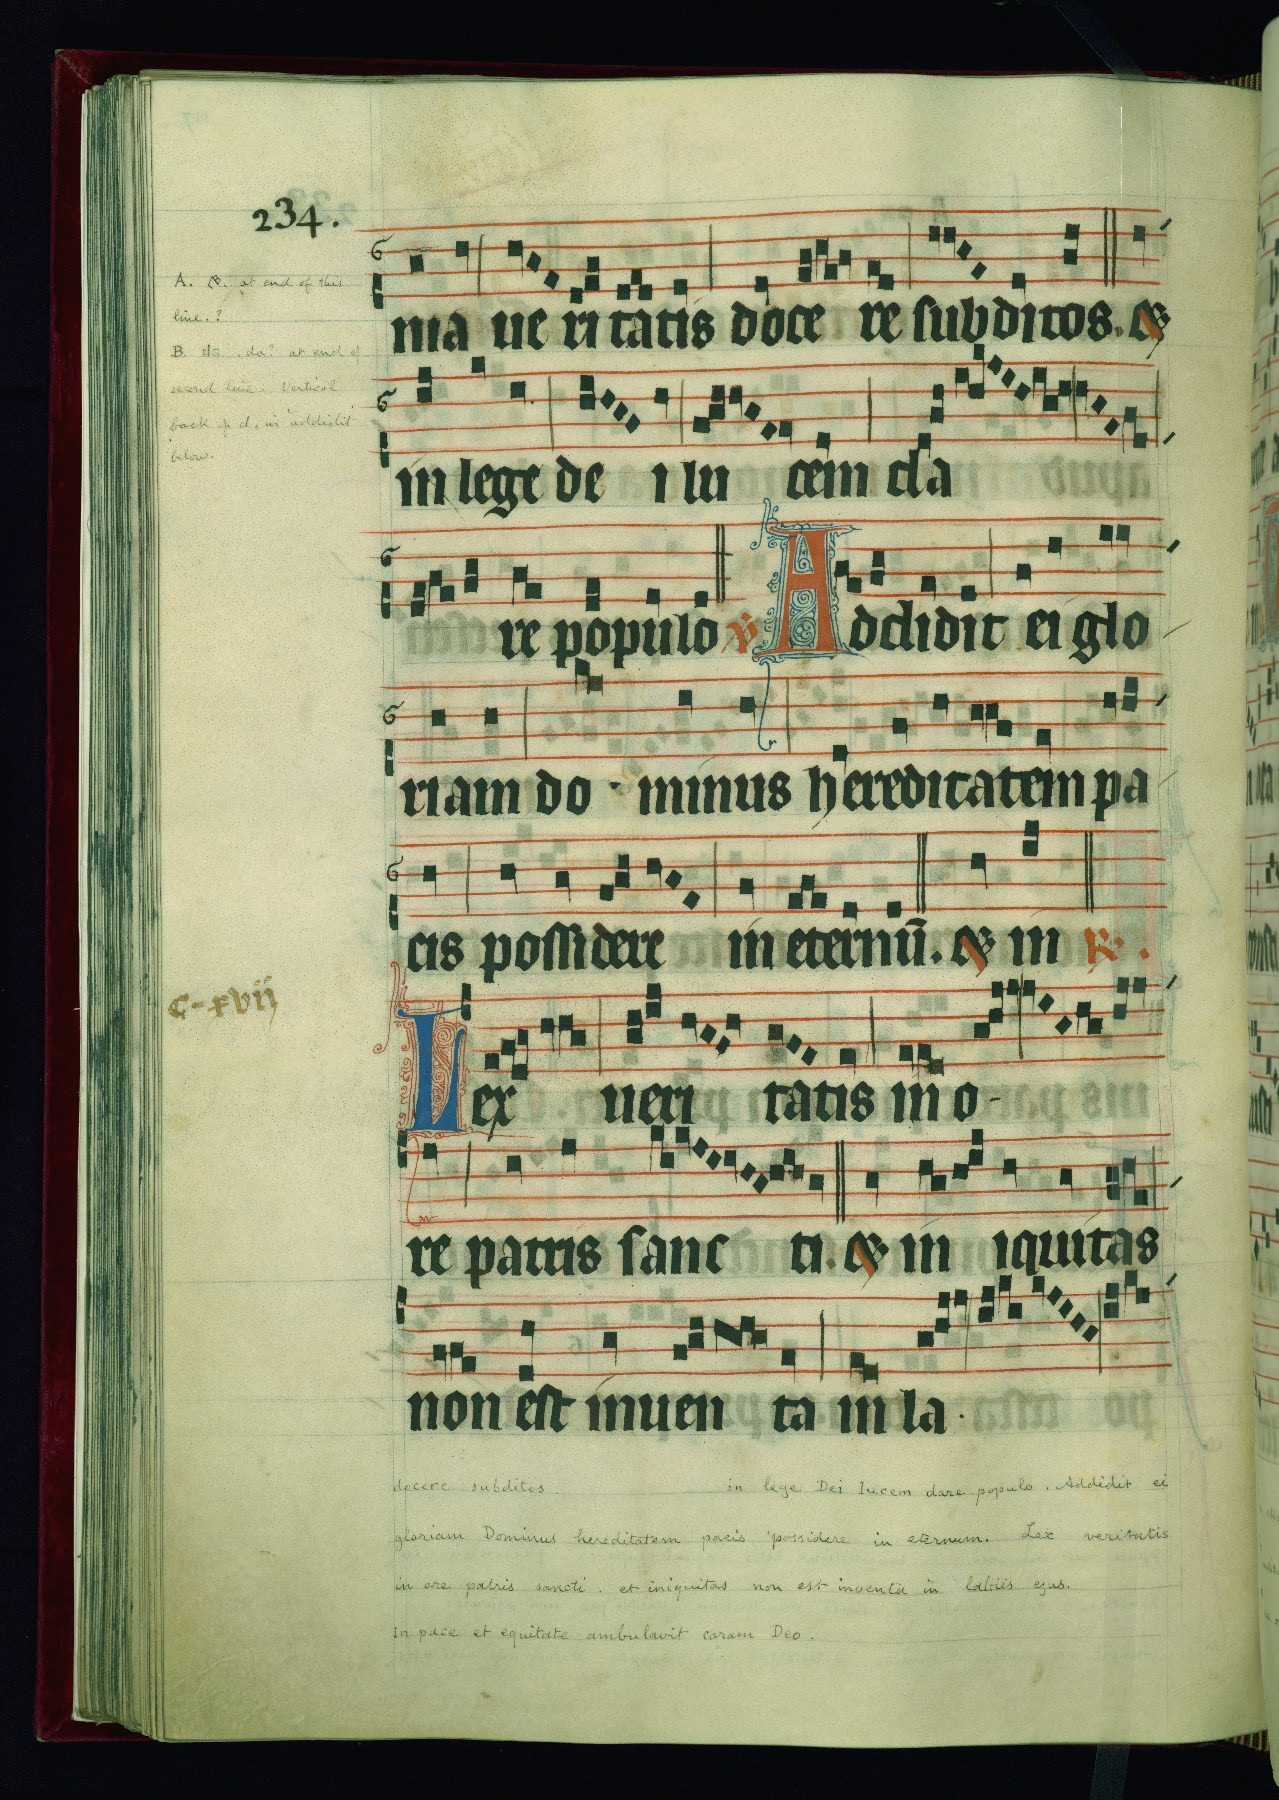 234.
A. &. at end of this
line.?
B. da? at end of
second line. Vertical
back of d, in addidit
below.
ma ue ri tatis doce re subditos. &
in lege de i lu cem da
re populo ℣ Addidit ei glo
riam do minus hereditatem pa
cis possidere in eternū. & in ℞.
C-xvij
Lex ueri tatis in o-
re patris sanc ti. & in iquitas
non est inuen ta in la.
docere subditos. in lege Dei lucem dare populo. Addidit ei
gloriam Dominus hereditatem pacis possidere in eternum. Lex veritatis
in ore patris sancti. et iniquitas non est inventa in labiis ejus.
In pace et equitate ambulavit coram Deo.